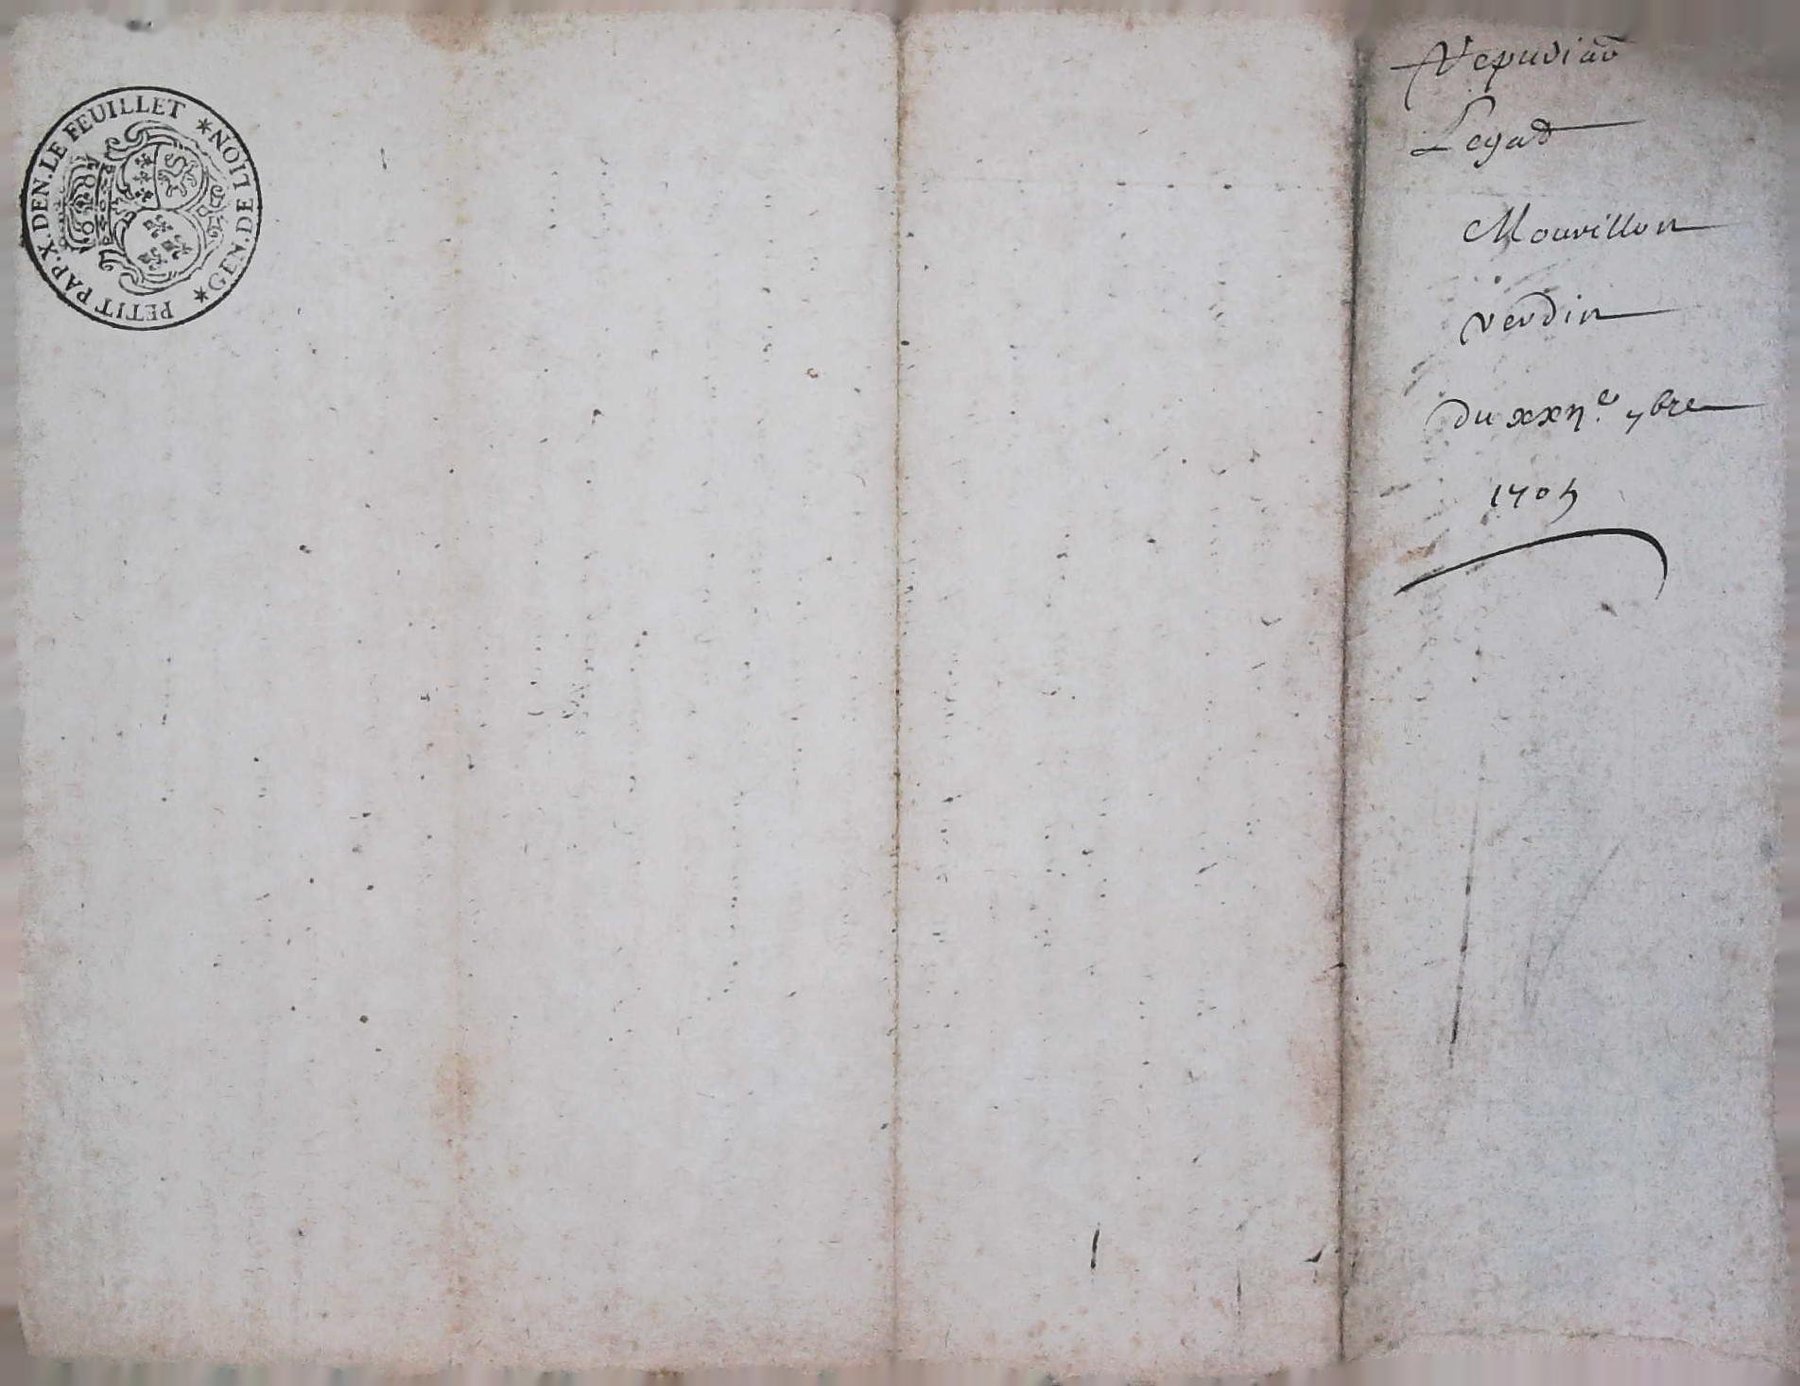 PETIT PAP. X. DEN. LE FEUILLET * NOIT ED'. DE
Repudiaō
Legat
Mouvillon
verdin
du xxij.e 7bre
1705